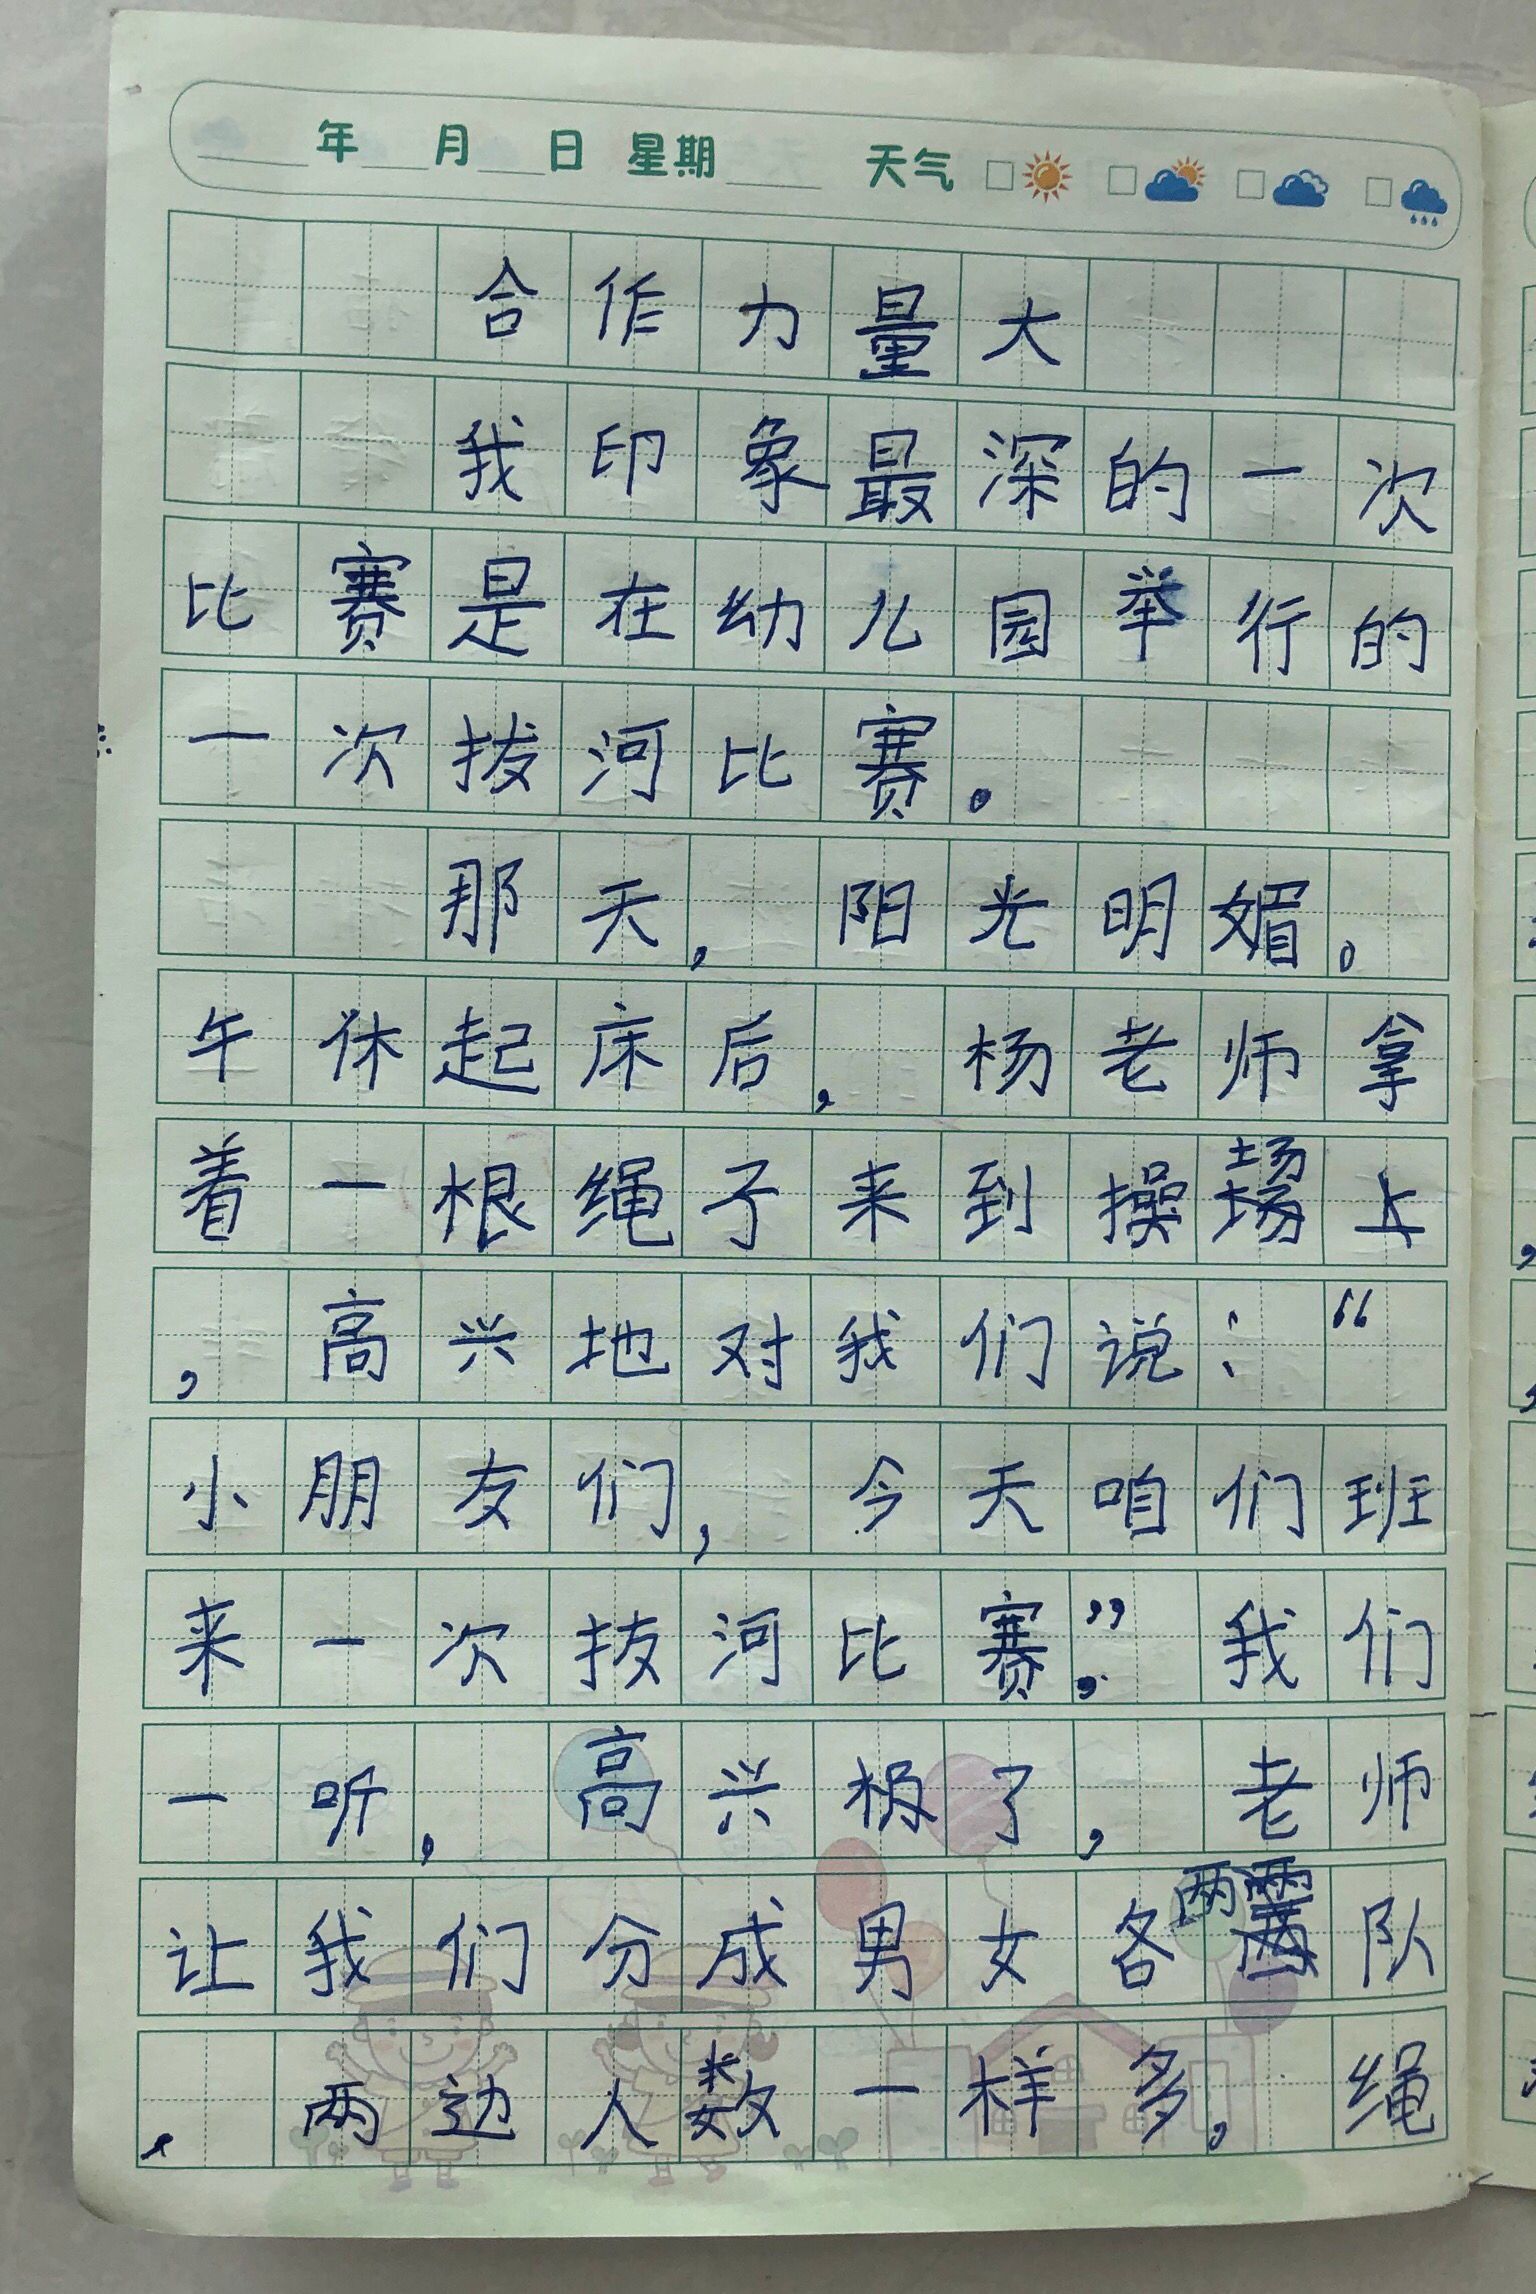 年 月 日 星期 天气
合作力量大
我印象最深的一次
比赛是在幼儿园举行的
一次拔河比赛。
那天,阳光明媚。
午休起床后,杨老师拿
着一根绳子来到操场上
,高兴地对我们说:“
小朋友们,今天咱们班
来一次拔河比赛。”我们
一听,高兴极了,老师
让我们分成男女各两队
,两边人数一样多,绳